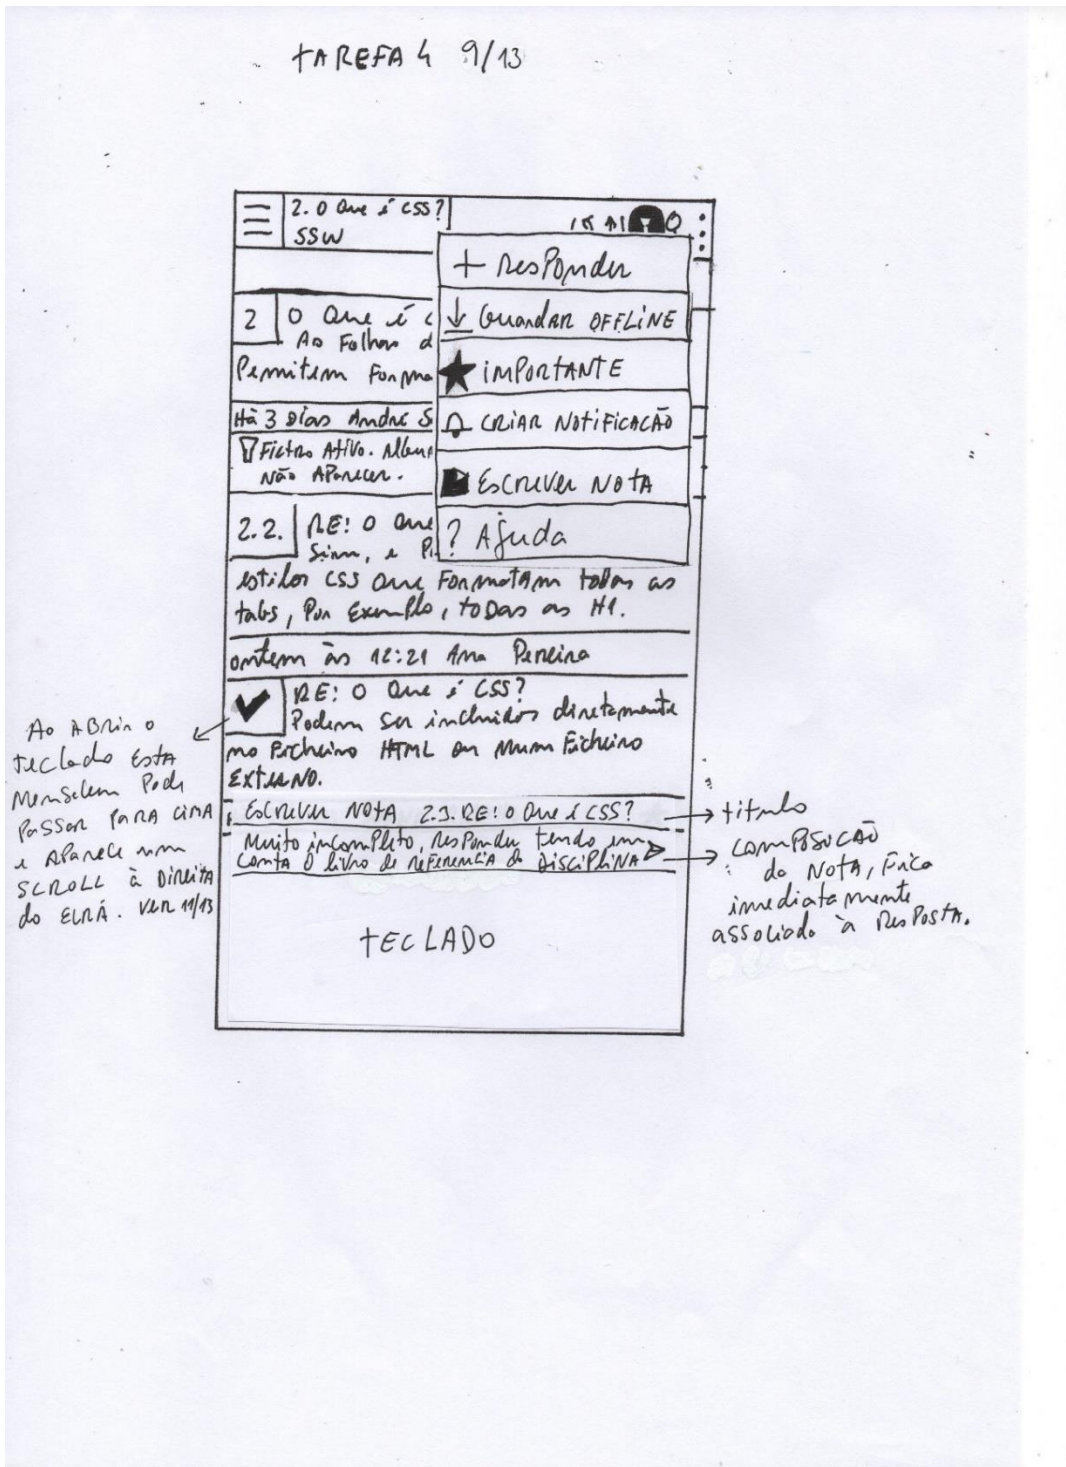 TAREFA 4 9/13
2. O que é CSS?
SSW
+ Responder
2 O que é c
As Folhas d
Permitem Forma
↓ Guardar OFFLINE
★ IMPORTANTE
Há 3 Dias André S
CRIAR NOTIFICACÃO
Filtro Ativo. Algun
Não Aparecer.
ESCREVER NOTA
2.2. RE: O que
Sim, e Pi
? Ajuda
estilos CSS que Formatam todas as
tags, Por Exemplo, todas as H1.
ontem às 12:21 Ana Pereira
RE: O que é CSS?
Podem ser incluidos diretamente
no Ficheiro HTML ou num Ficheiro
EXTERNO.
ESCREVER NOTA 2.3. RE: O que é CSS?
Muito incompleto, responder tendo em
conta o livro de referencia da DISCIPLINA
TECLADO
Ao ABRIR o
teclado ESTA
Mensagem Pode
PASSAR PARA CIMA
e APARECE um
SCROLL à Direita
do ECRÃ. VER 11/13
→ titulo
→ composicão
da NOTA, Fica
imediatamente
associado à Resposta.